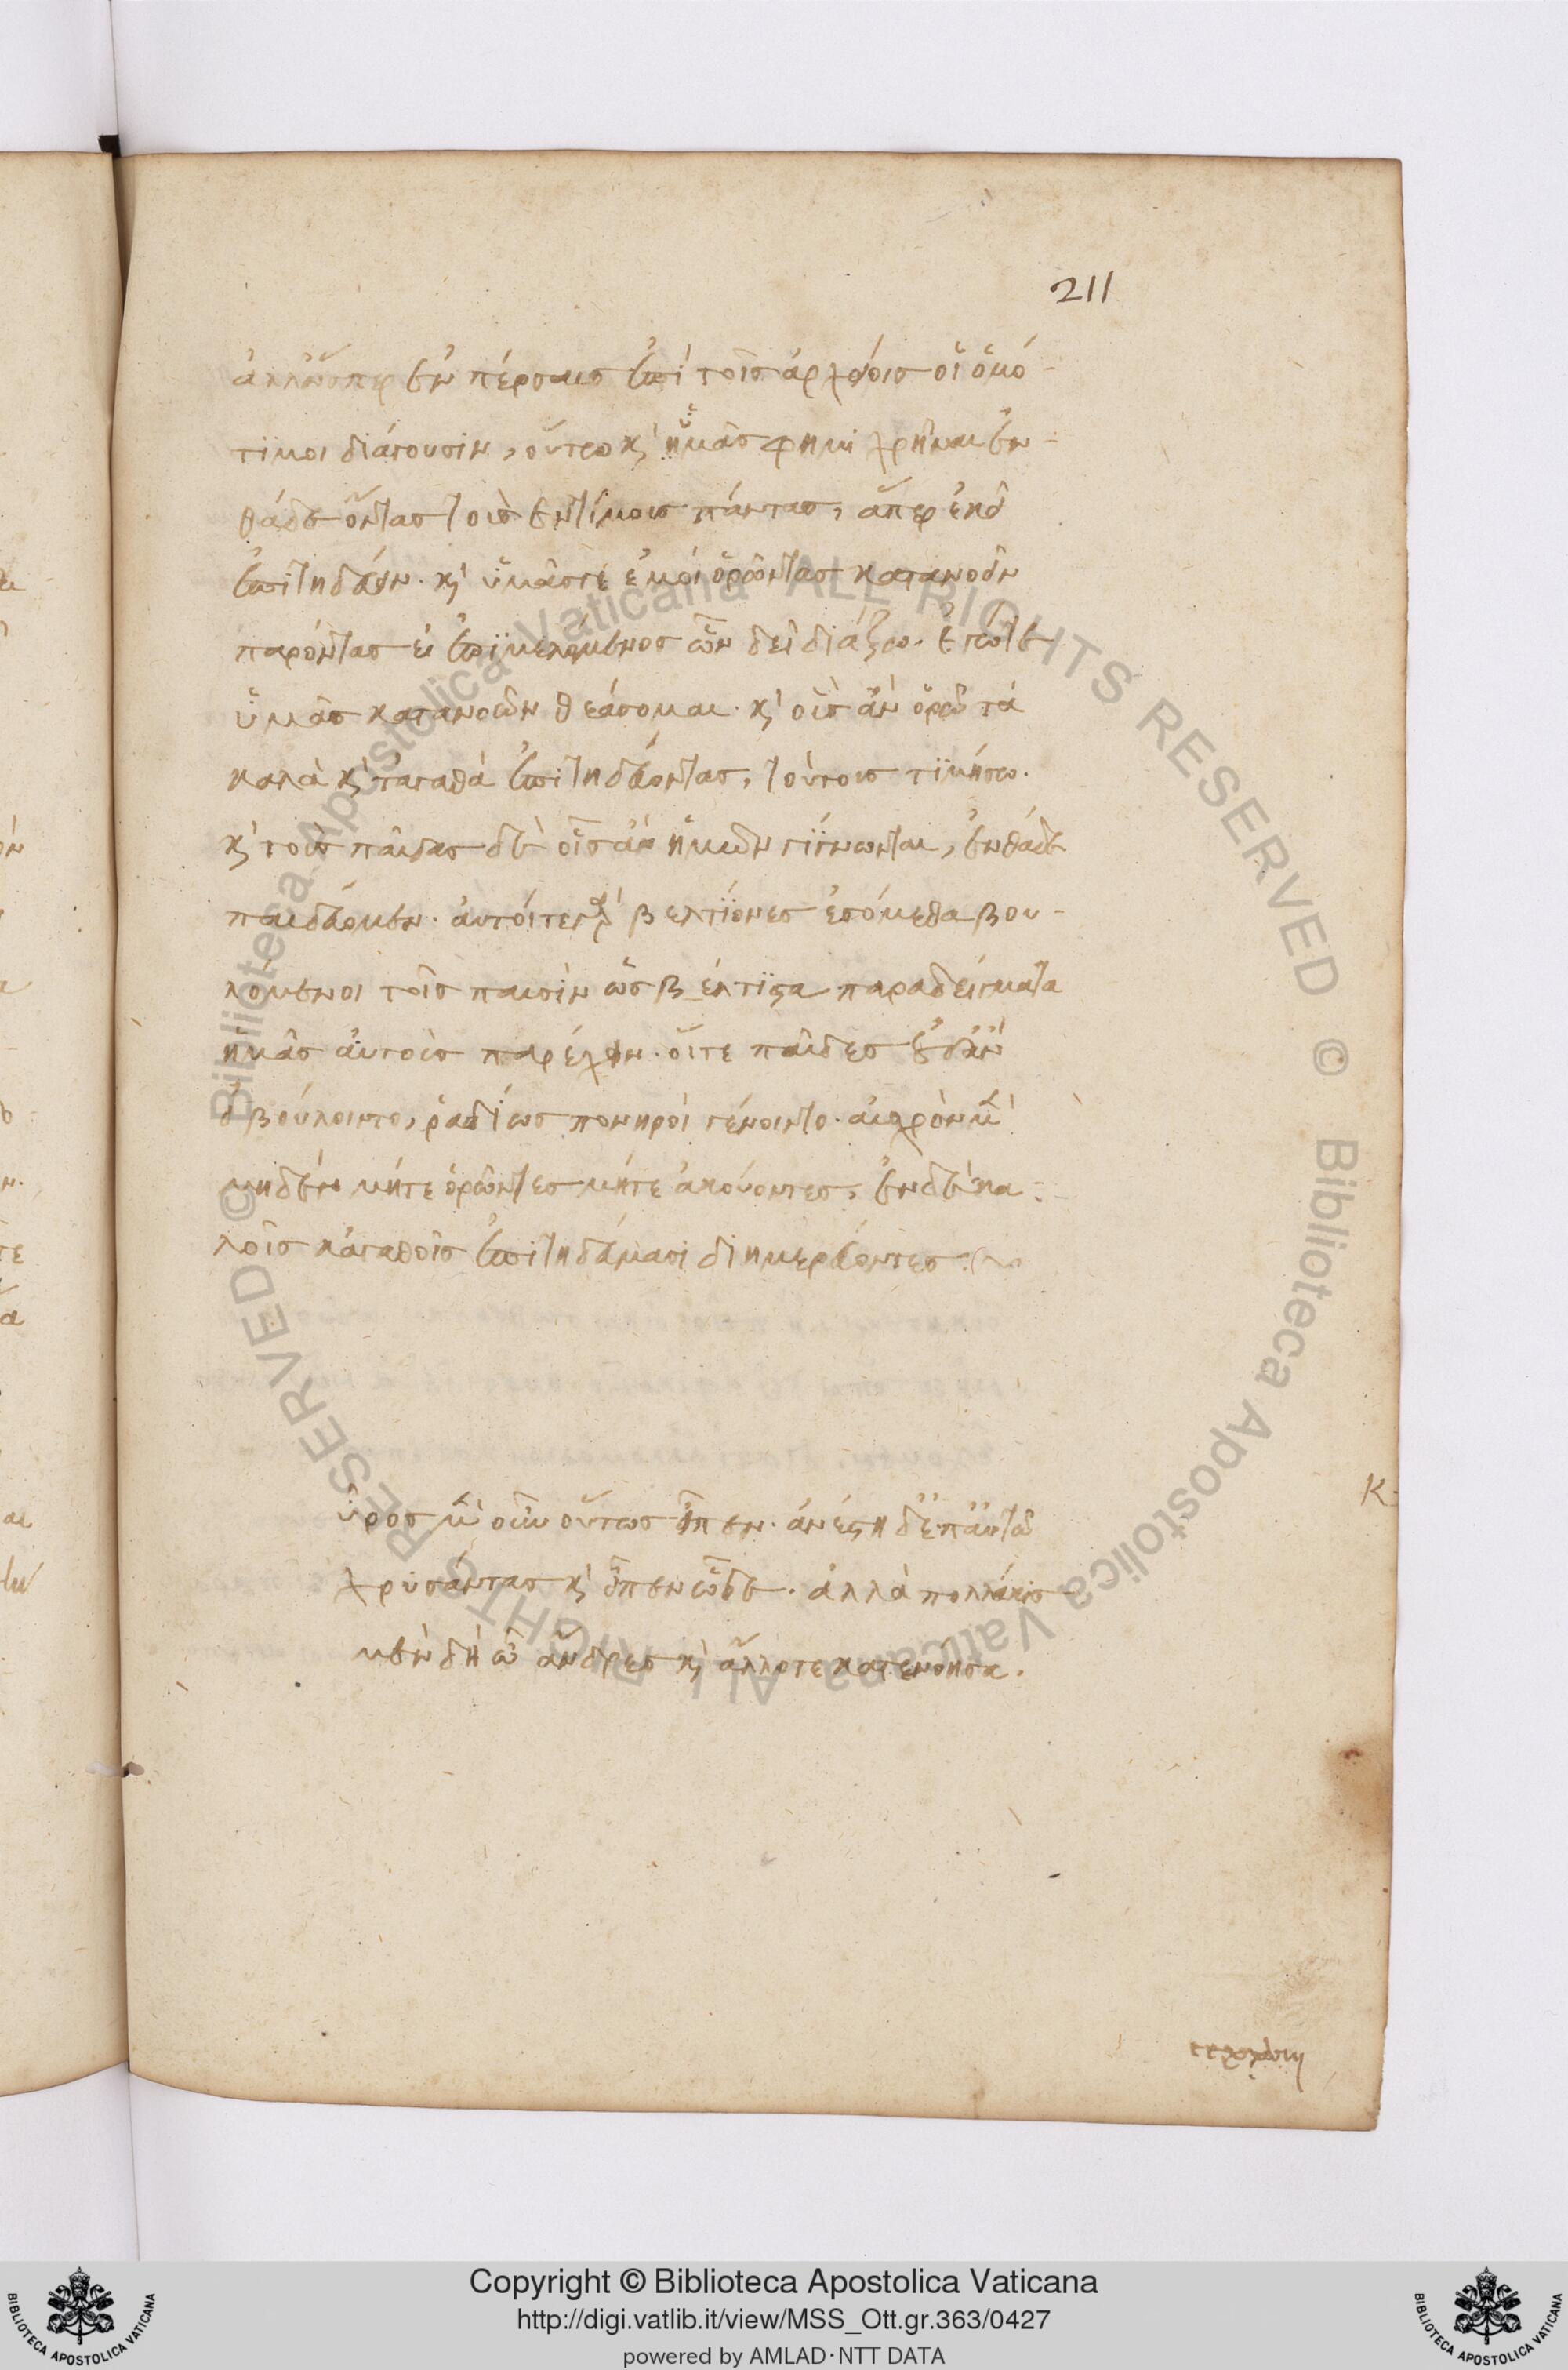 211
ἀλλ' ὥσπερ ἐν πέρσαις ἐπὶ τοῖς ἀρχείοις οἱ ὁμό-
τιμοι διάγουσιν, οὕτω κ' ἡμᾶς φημὶ χρῆναι ἐν-
θάδε ὄντας τοὺς ἐντίμους πάντας, ἅπερ ἐκεῖ
ἐπιτηδεύειν. κ' ὑμᾶς τε ἐμὲ ὁρῶντας κατανοεῖν
παρόντας εἰ ἐπιμελόμενος ὧν δεῖ διάξω. ἐγώ τε
ὑμᾶς κατανοῶν θεάσομαι. κ' οὓς ἂν ὁρῶ τὰ
καλὰ κ' τἀγαθὰ ἐπιτηδεύοντας, τούτους τιμήσω.
κ' τοὺς παῖδας δὲ οἳ ἂν ἡμῶν γίγνωνται, ἐνθάδε
παιδεύωμεν. αὐτοί τε γὰρ βελτίονες ἐσόμεθα βου-
λόμενοι τοῖς παισὶν ὡς βέλτιστα παραδείγματα
ἡμᾶς αὐτοὺς παρέχειν. οἵ τε παῖδες οὐδ' ἂν
εἰ βούλοιντο, ῥαδίως πονηροὶ γένοιντο. αἰσχρὸν μὲν
μηδὲν μήτε ὁρῶντες μήτε ἀκούοντες, ἐν δὲ κα-
λοῖς κἀγαθοῖς ἐπιτηδεύμασι διημερεύοντες.
ῦρος μὲν οὖν οὕτως εἶπεν. ἀνέστη δ' ἐπ' αὐτῷ
χρυσάντας κ' εἶπεν ὧδε. ἀλλὰ πολλάκις
μὲν δὴ ὦ ἄνδρες κ' ἄλλοτε κατενόησα.
κ
Copyright © Biblioteca Apostolica Vaticana
http://digi.vatlib.it/view/MSS_Ott.gr.363/0427
powered by AMLAD·NTT DATA
BIBLIOTECA APOSTOLICA VATICANA
BIBLIOTECA APOSTOLICA VATICANA
© Biblioteca Apostolica Vaticana ALL RIGHTS RESERVED
© Biblioteca Apostolica Vaticana ALL RIGHTS RESERVED